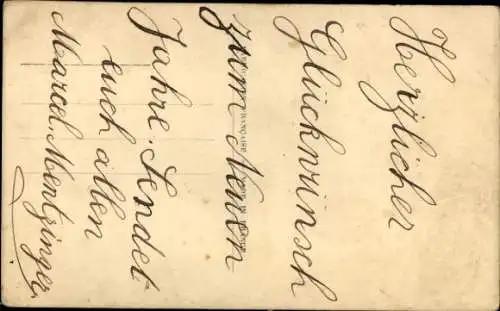 Herzlicher
Glückwunsch
zum Neuen
Jahre. Sendet
euch allen
Marcel. Mentzinger